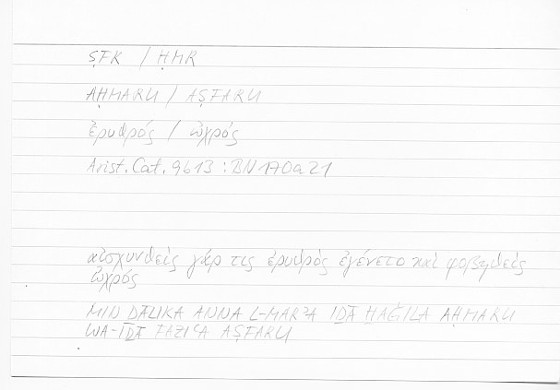 ṢFR / ḤMR
AḤMARU / AṢFARU
ἐρυθρός / ὠχρός
Arist. Cat. 9b13 : BN 170a21
αἰσχυνθεὶς γάρ τις ἐρυθρὸς ἐγένετο καὶ φοβηθεὶς
ὠχρός
MIN ḎĀLIKA ANNA L-MARʾA IḎĀ ḪAǦILA AḤMARU
WA-IḎĀ FAZIʿA AṢFARU